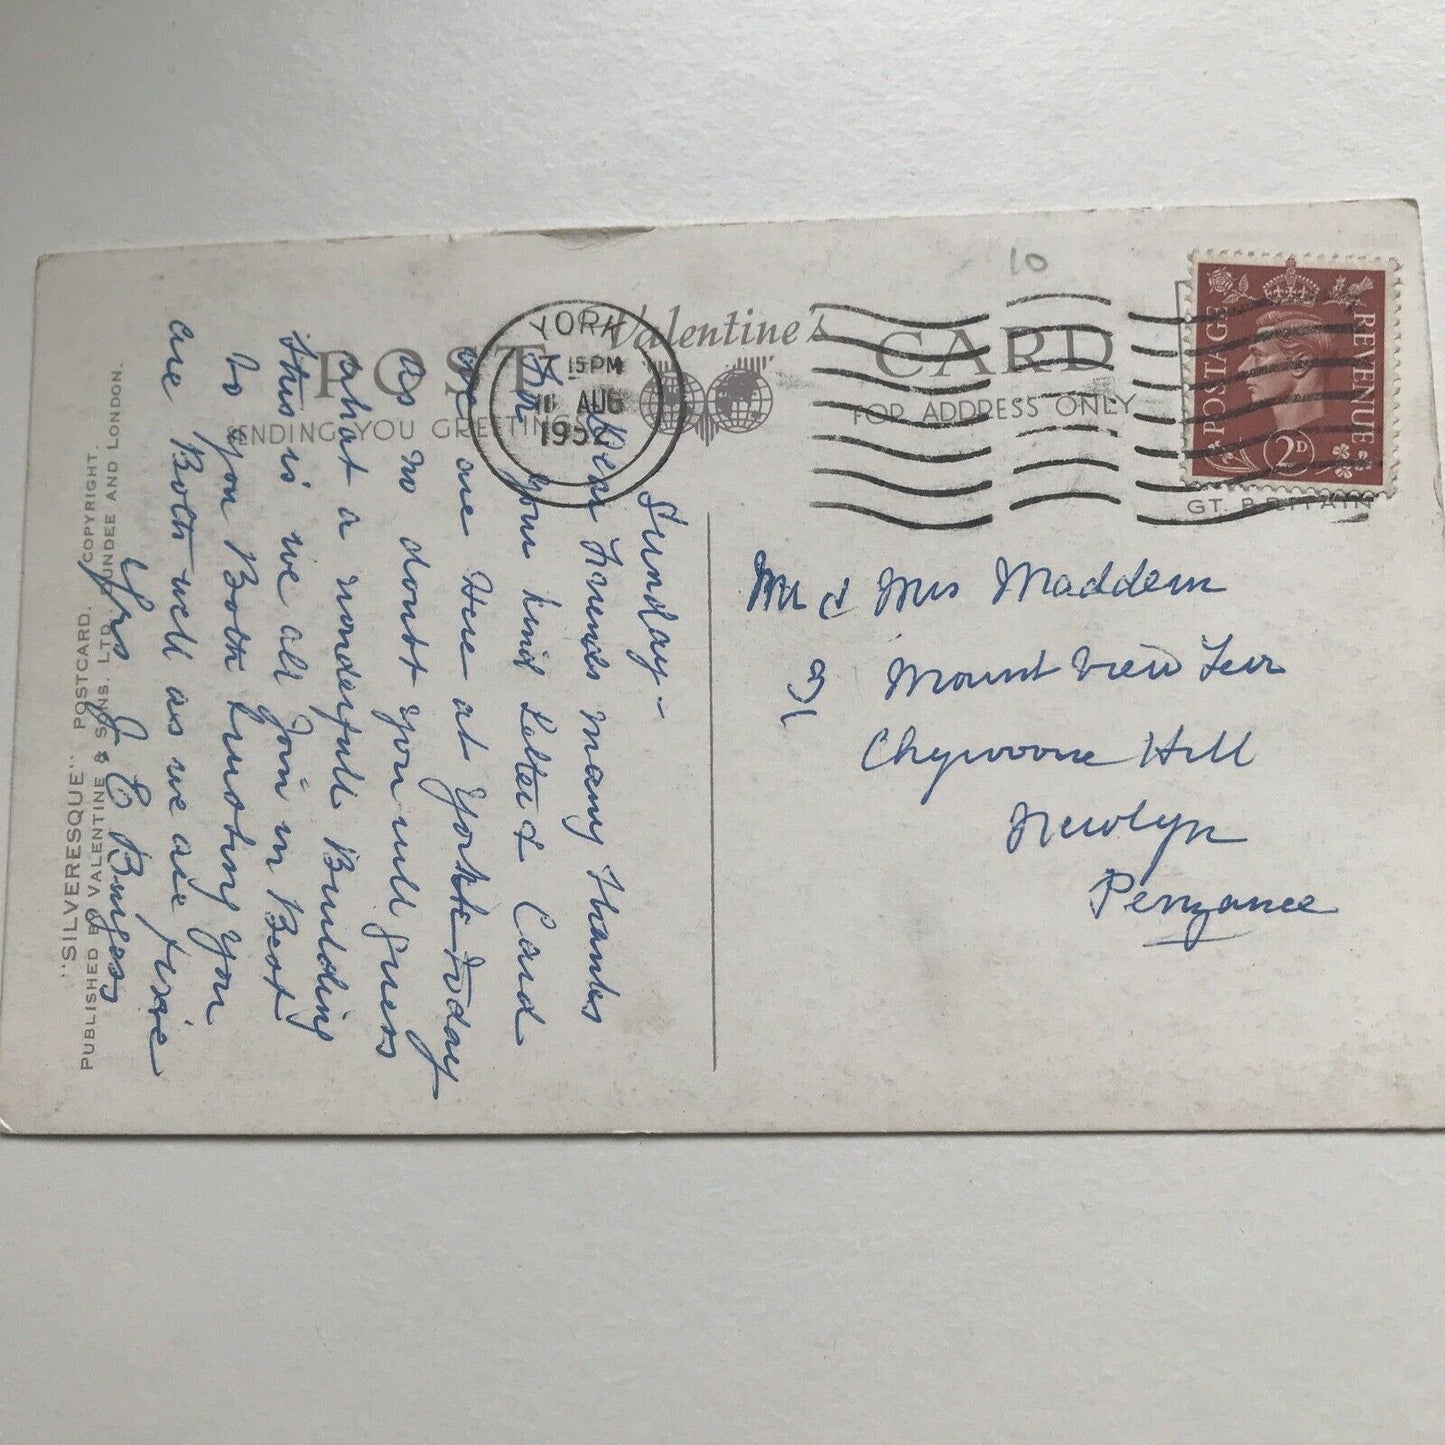 Valentine's
POST CARD
SENDING YOU GREETINGS
FOR ADDRESS ONLY
10
YORK
15 PM
AUG
1952
POSTAGE
REVENUE
2D
GT. BRITAIN
Mr & Mrs Maddern
9 Mount View Terr
Chywoone Hill
Newlyn
Penzance
Sunday –
Dear Friends many thanks
For your kind Letter & Card
we are Here at York today
as no doubt you will guess
what a wonderfull Building
this is we all Join in Best
to you Both trusting you
are Both well as we are here
Yrs J E Burgess
"SILVERESQUE" POSTCARD. COPYRIGHT.
PUBLISHED BY VALENTINE & SONS. LTD. DUNDEE AND LONDON.